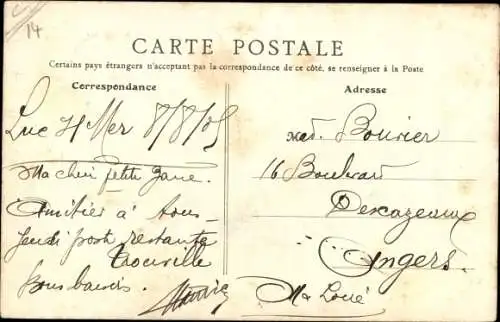 14
CARTE POSTALE
Certains pays étrangers n'acceptant pas la correspondance de ce côté, se renseigner à la Poste
Correspondance
Adresse
Luc s/ Mer 8/8/05
Ma chère petite Jane.
Amitiés à tous
Jeudi poste restante
Trouville
Bons baisers.
Mad. Bouvier
16 Boulevard
Descazeaux
Angers.
Mne Loire